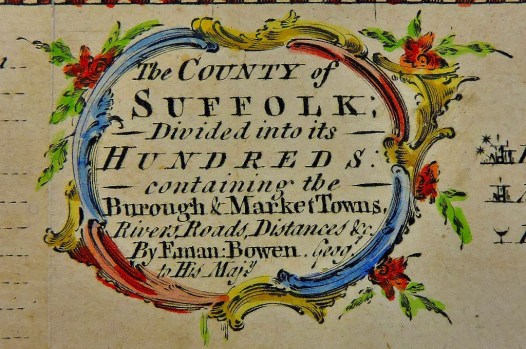 The COUNTY of
SUFFOLK;
Divided into its
HUNDREDS:
containing the
Burough & Market Towns,
Rivers, Roads, Distances &c.
By Eman: Bowen. Geogr
to His Majty